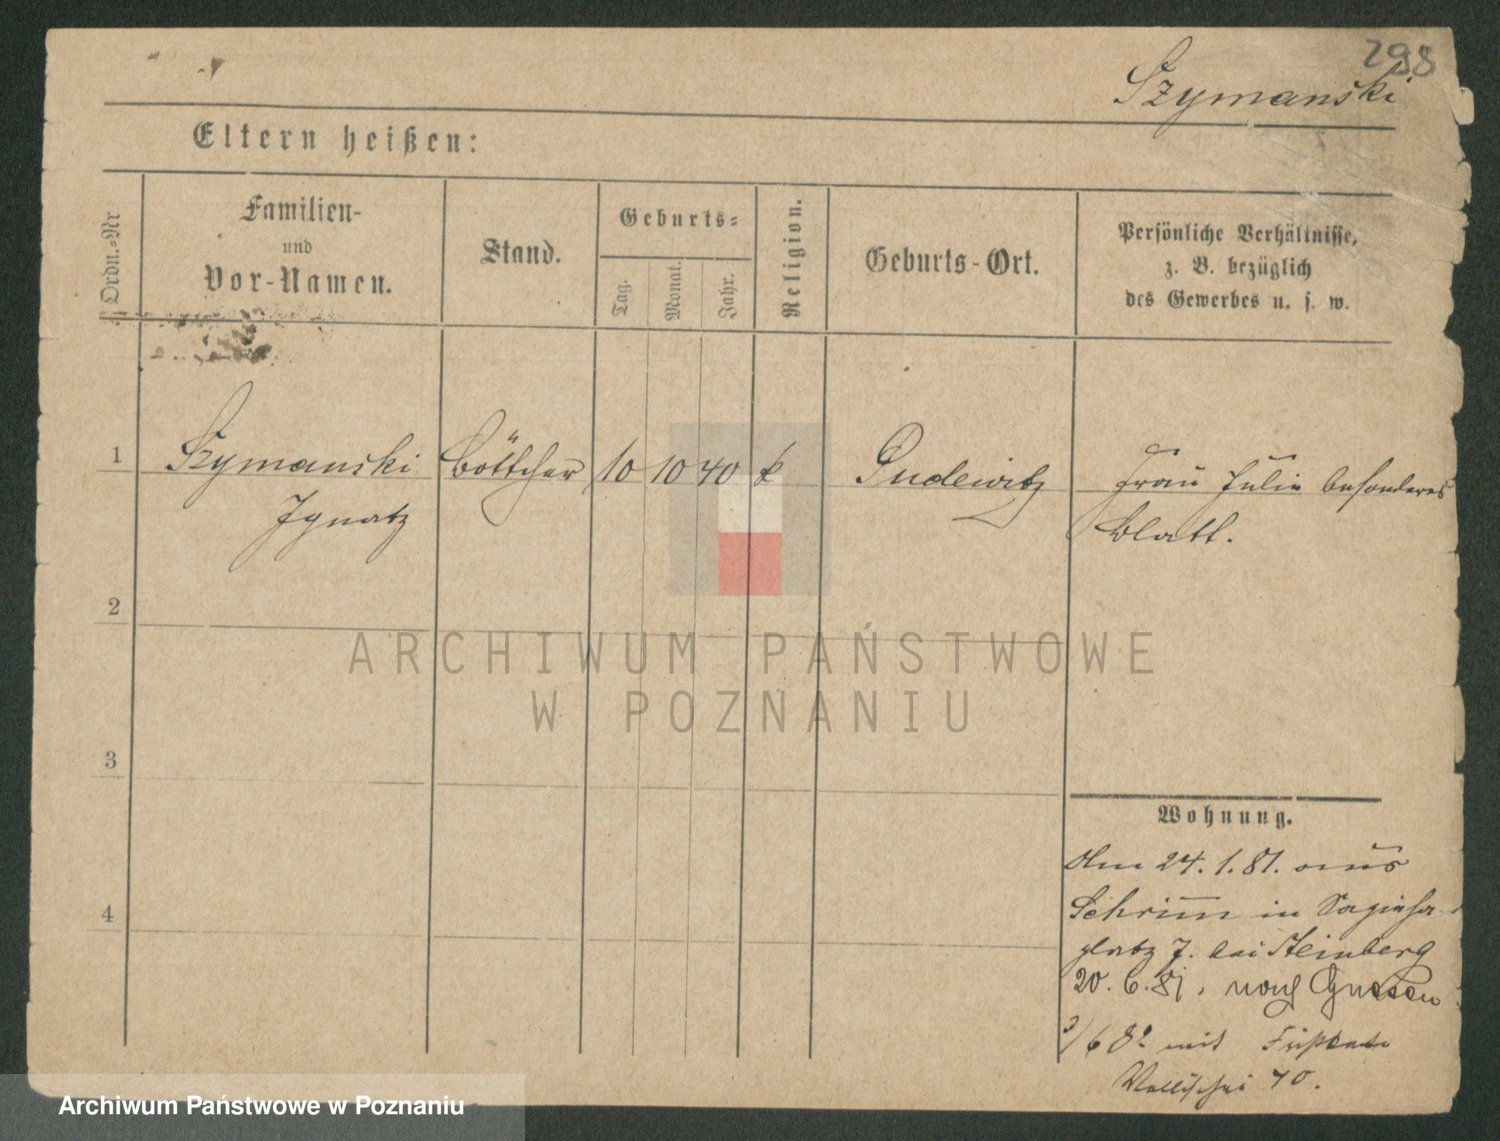 298
Szymanski
Eltern heißen:
Ordn.-Nr
Familien-
und
Vor-Namen.
Stand.
Geburts-
Tag.
Monat.
Jahr.
Religion.
Geburts-Ort.
Persönliche Verhältnisse,
z. B. bezüglich
des Gewerbes u. s. w.
1 Szymanski Böttcher 10 10 40 k Pudewitz Frau Julie besonderes
Ignatz Blatt.
2
ARCHIWUM PAŃSTWOWE
W POZNANIU
3
Wohnung.
Am 24.1.81. aus
Schrimm in Sapieha
platz 7. bei Steinberg
4
20.6.81. nach Gnesen
/6 82 mit
Wallischei 70.
Archiwum Państwowe w Poznaniu